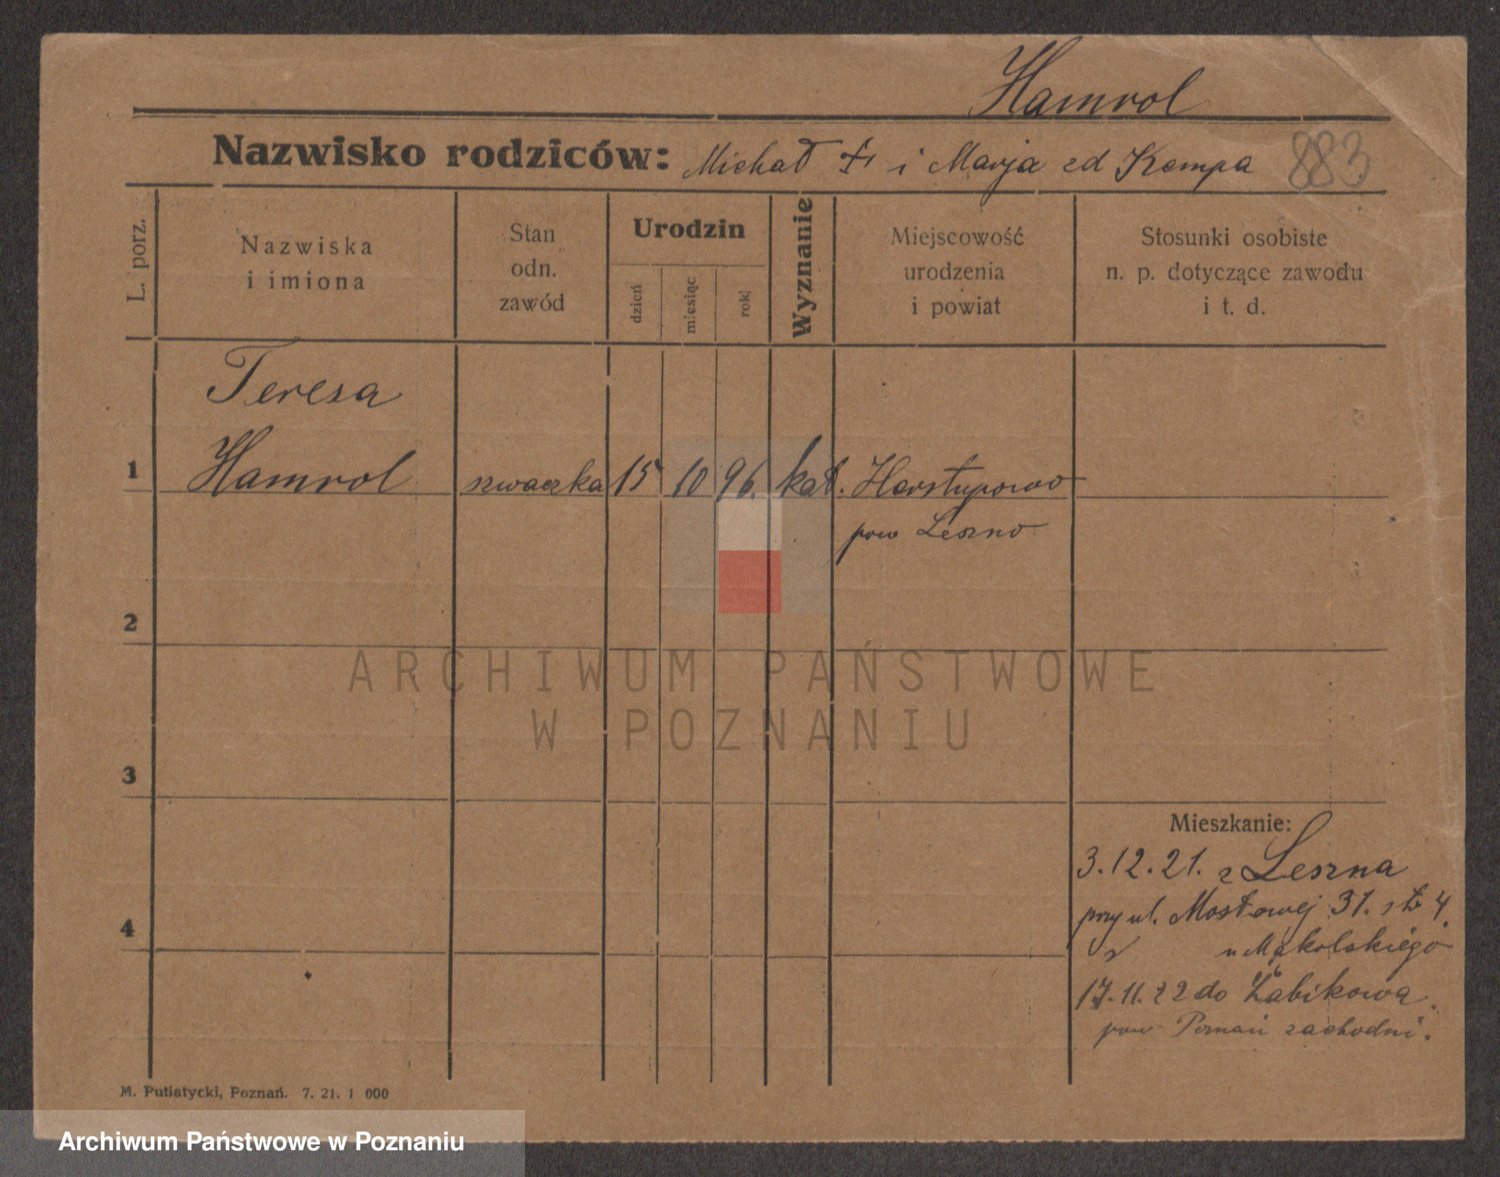 Hamrol
Nazwisko rodziców: Michał † i Marja zd Kempa 883
L. porz.
Nazwiska
i imiona
Stan
odn.
zawód
Urodzin
dzień
miesiąc
rok
Wyznanie
Miejscowość
urodzenia
i powiat
Stosunki osobiste
n. p. dotyczące zawodu
i t. d.
Teresa
1 Hamrol szwaczka 15 10 96. kat. Harstupowo
pow Leszno
2
ARCHIWUM PAŃSTWOWE
W POZNANIU
3
Mieszkanie:
3.12.21. z Leszna
przy ul. Mostowej 31. 4.
u Mąkolskiego
4
17.11.22 do Żabikowa.
pow Poznań zachodni.
M. Putiatycki, Poznań. 7. 21. 1 000
Archiwum Państwowe w Poznaniu